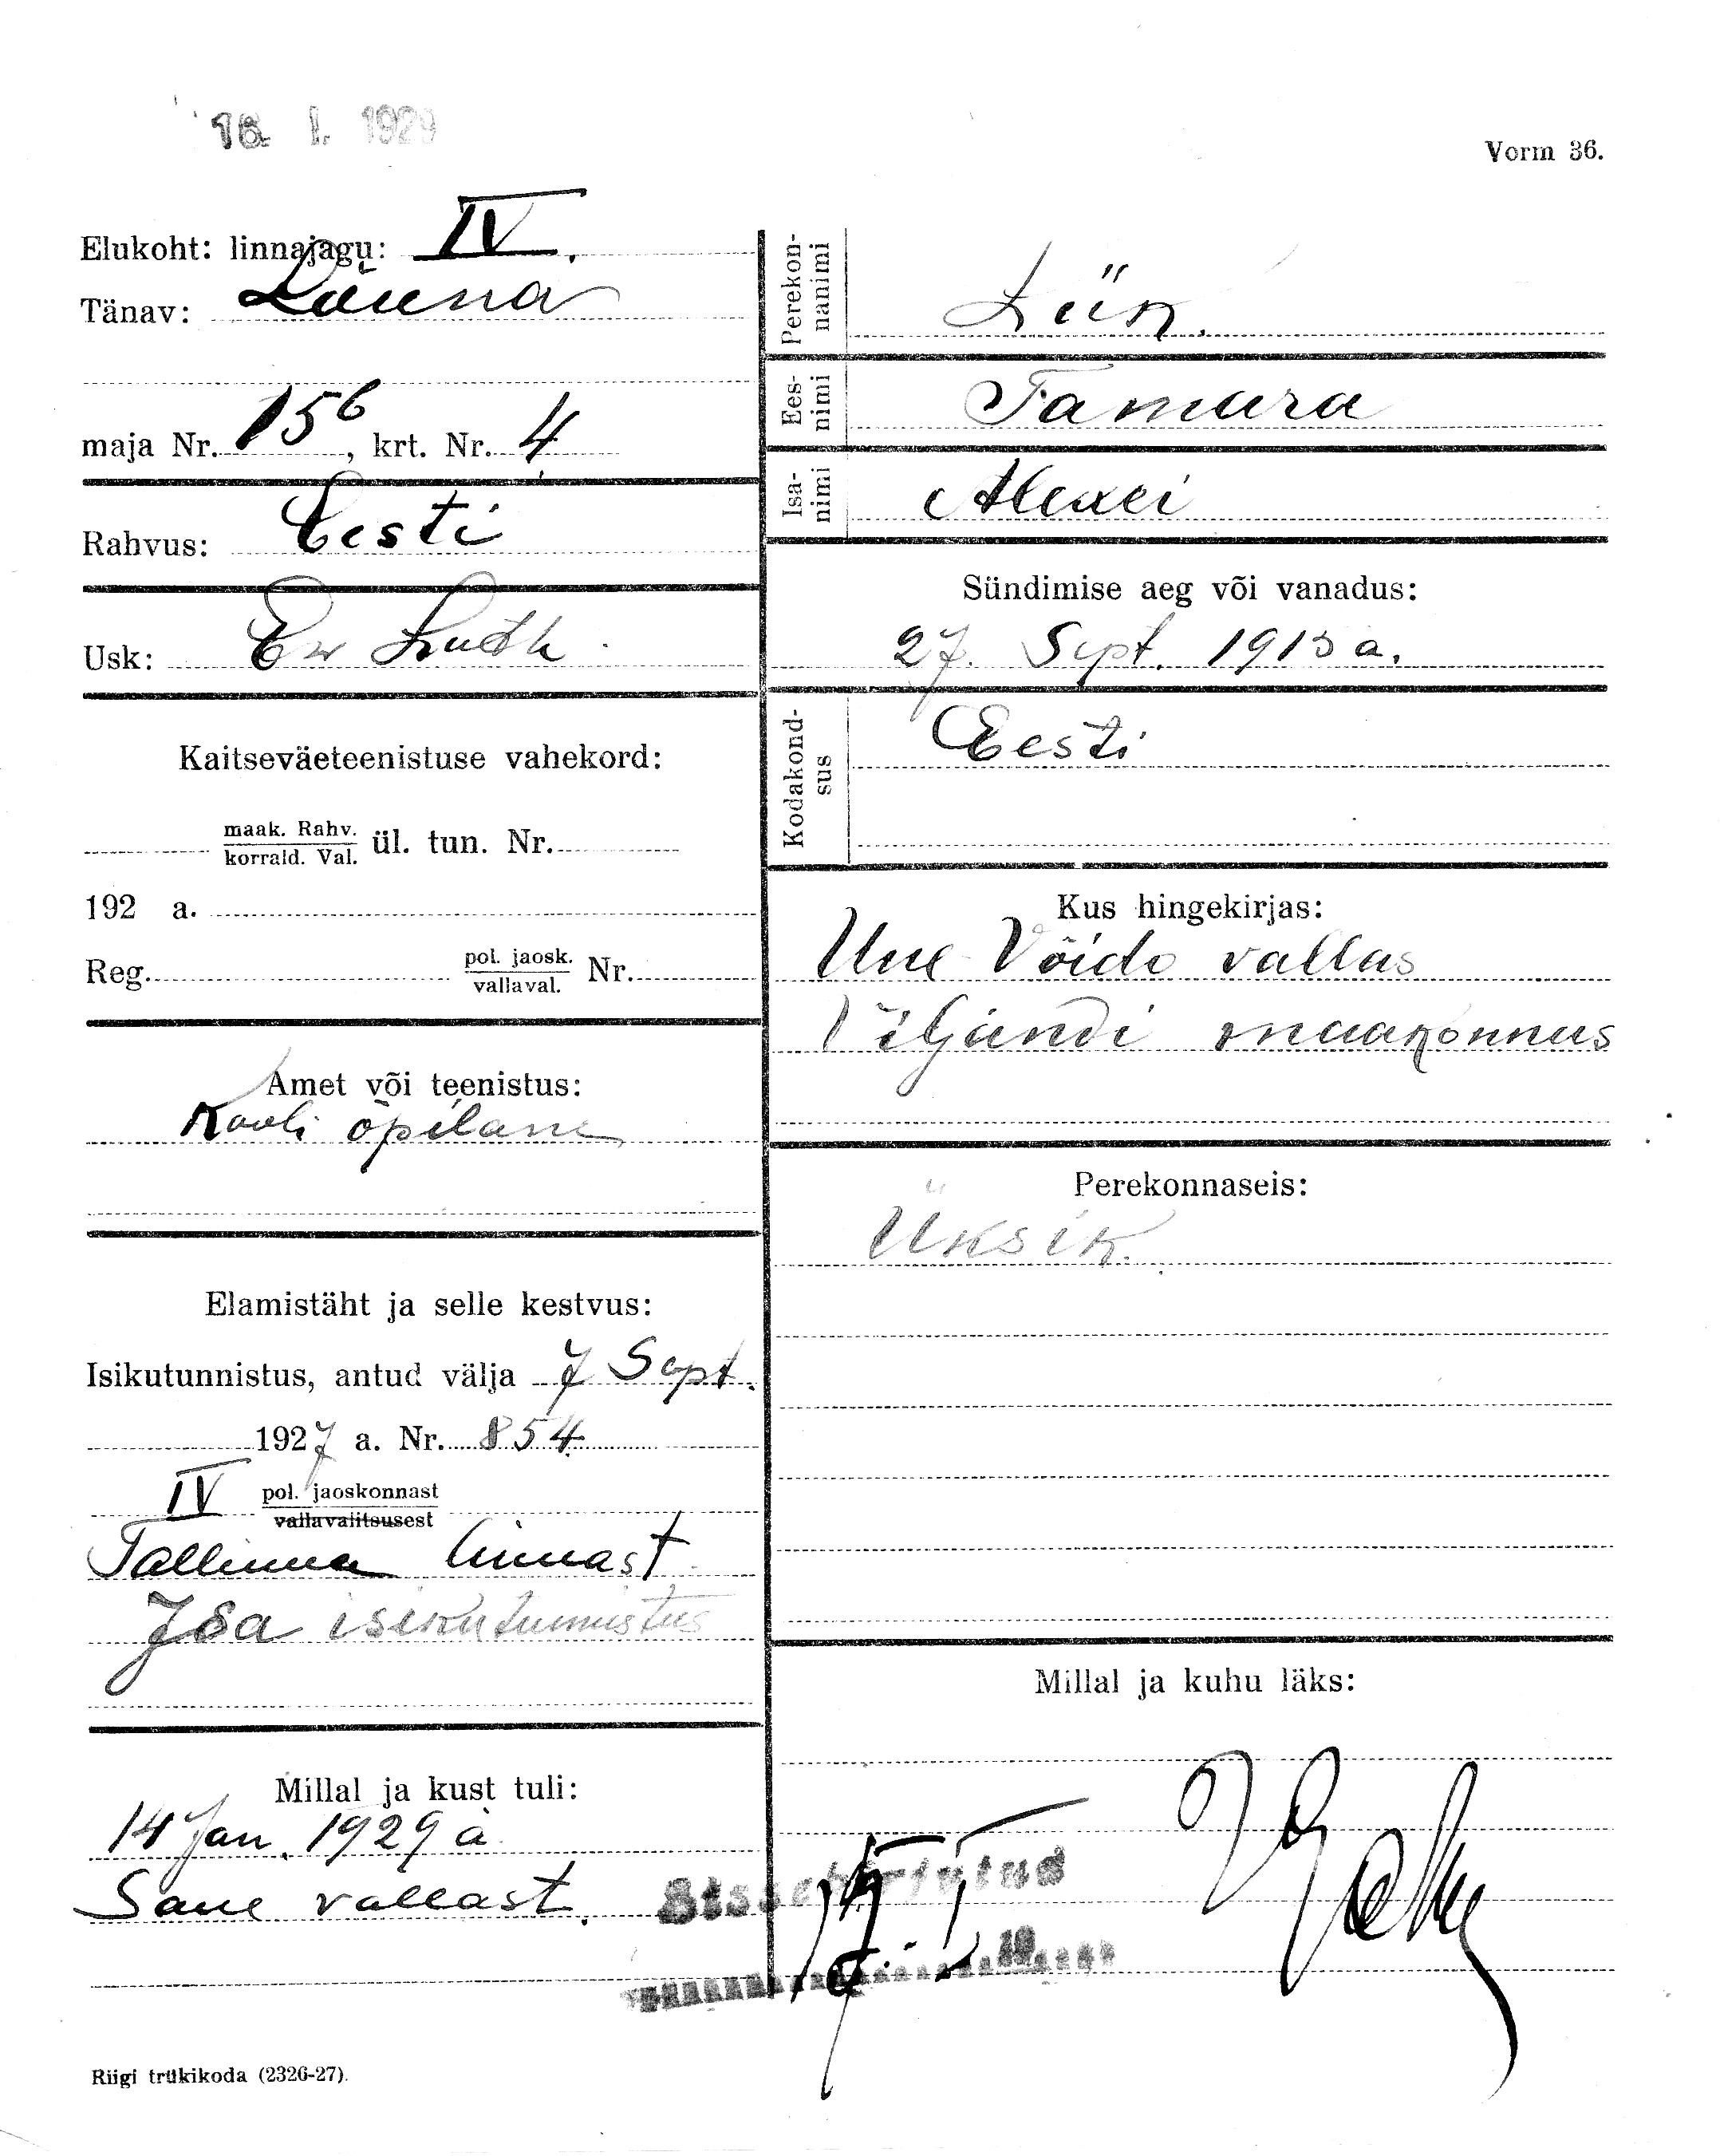 16. I. 1929
Vorm 36.
Elukoht: linnajagu: IV.
Tänav: Lõuna
maja Nr. 15b, krt. Nr. 4
Rahvus: Eesti
Usk: Ew Luth.
Kaitseväeteenistuse vahekord:
maak. Rahv. ül. tun. Nr.
korrald. Val.
192 a.
Reg. pol. jaosk. Nr.
vallaval.
Amet või teenistus:
Kooli õpilane
Elamistäht ja selle kestvus:
Isikutunnistus, antud välja 7 Sept.
1927 a. Nr. 854
IV pol. jaoskonnast
vallavalitsusest
Tallinna linnast
Isa isikutunnistus
Millal ja kust tuli:
14 Jan. 1929 a
Saue vallast.
Perekon-
nanimi
Liik.
Ees-
nimi
Tamara
Isa-
nimi
Alexei
Sündimise aeg või vanadus:
27. Sept. 1913 a.
Kodakond-
sus
Eesti
Kus hingekirjas:
Uue Võidu vallas
Viljandi maakonnas
Perekonnaseis:
Üksik.
Millal ja kuhu läks:
Sissekirjutud
19
Riigi trükikoda (2326-27).